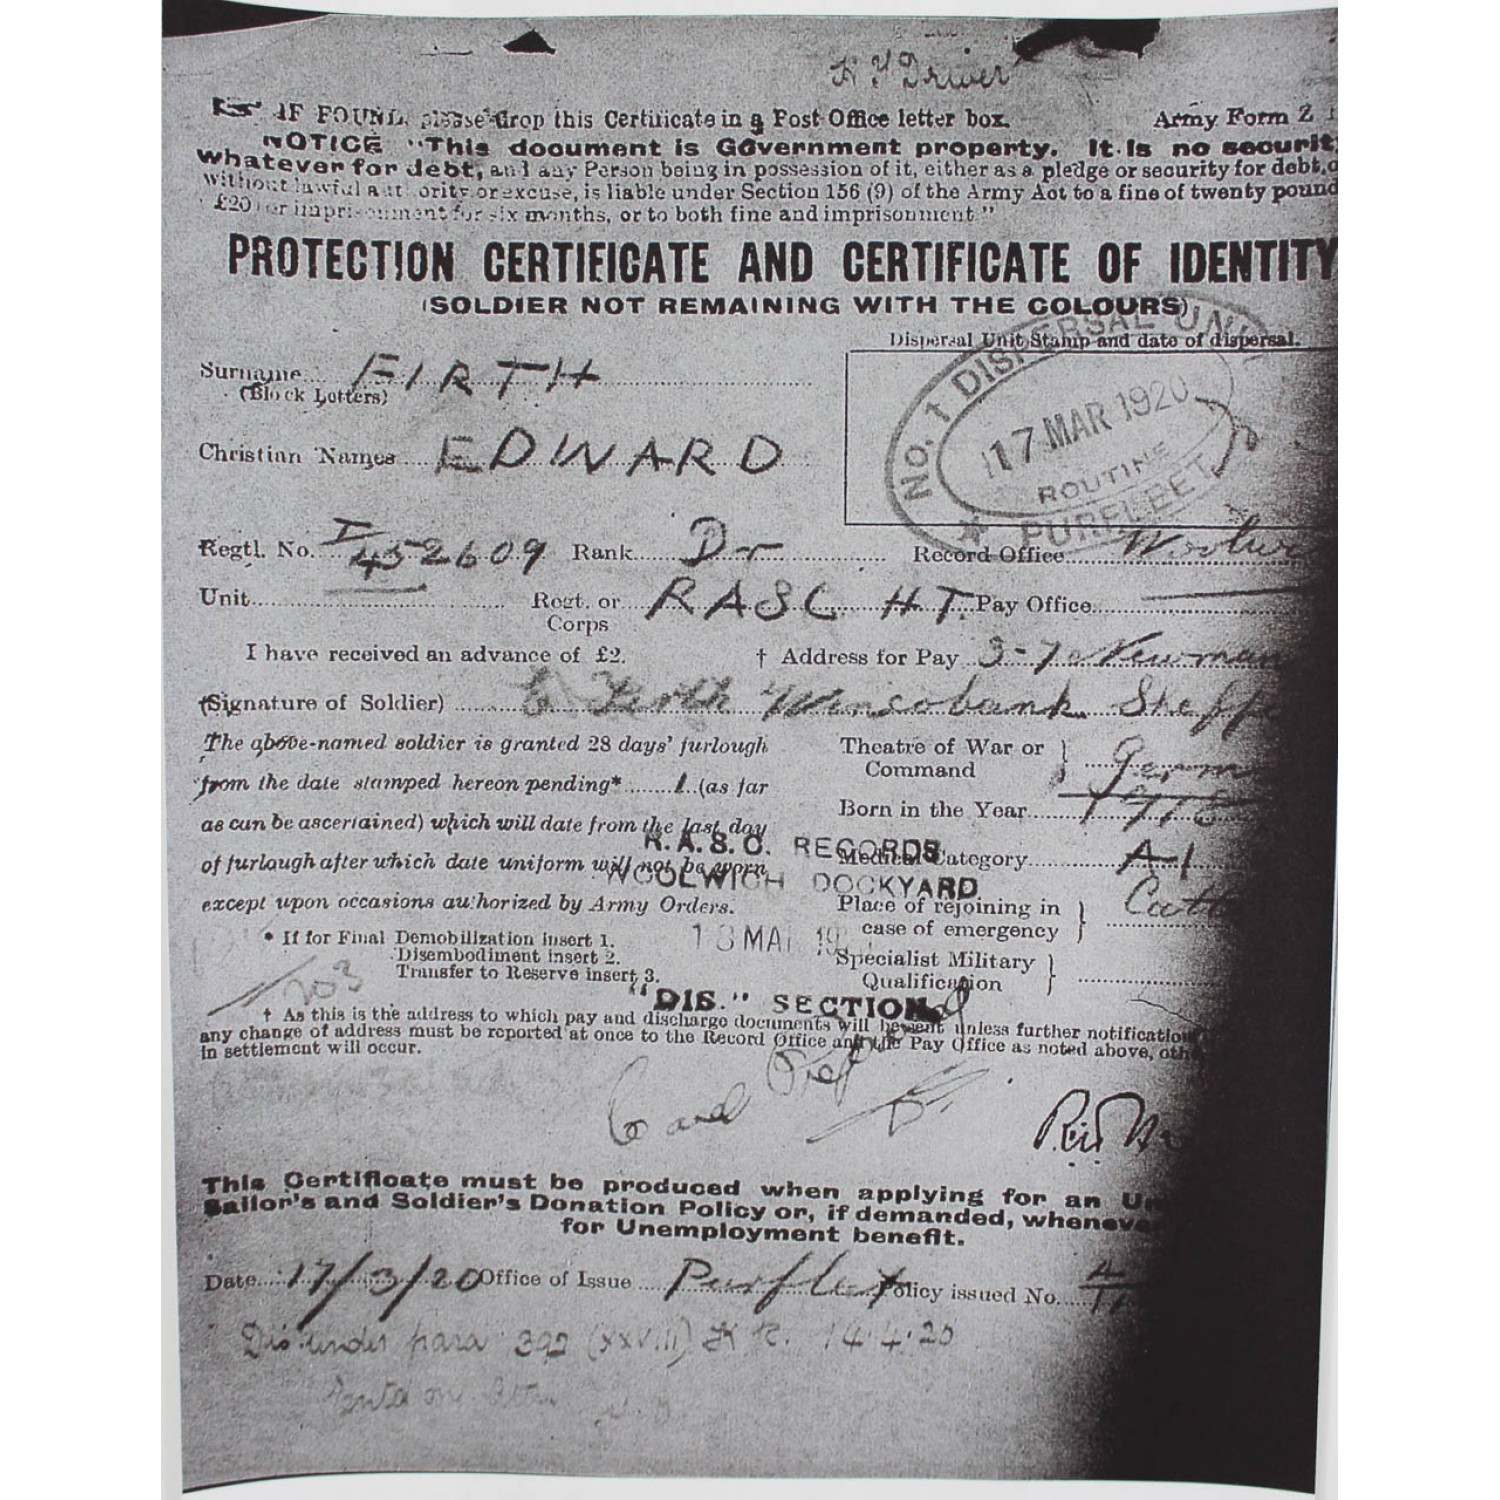 H T Driver
IF FOUND, please drop this Certificate in a Post Office letter box. Army Form Z
NOTICE "This document is Government property. It is no securit
whatever for debt, and any Person being in possession of it, either as a pledge or security for debt, o
without lawful authority or excuse, is liable under Section 156 (9) of the Army Act to a fine of twenty pound
£20) or imprisonment for six months, or to both fine and imprisonment"
PROTECTION CERTIFICATE AND CERTIFICATE OF IDENTITY
(SOLDIER NOT REMAINING WITH THE COLOURS)
Dispersal Unit Stamp and date of dispersal.
NO. 1 DISPERSAL UNIT
17 MAR 1920
ROUTINE
PURFLEET
Surname FIRTH
(Block Letters)
Christian Names EDWARD
Regtl. No. T/452609 Rank Dr Record Office Woolwi
Unit Regt. or RASC HT. Pay Office
Corps
I have received an advance of £2. † Address for Pay 3-7 Newman
(Signature of Soldier) E Firth Wincobank Sheff
The above-named soldier is granted 28 days' furlough
from the date stamped hereon pending* 1 (as far
as can be ascertained) which will date from the last day
of furlough after which date uniform will not be worn
except upon occasions authorized by Army Orders.
Theatre of War or
Command
Germ
Born in the Year
Medical Category A-1
Place of rejoining in
case of emergency
Catt
Specialist Military
Qualification
R.A.S.C. RECORDS
WOOLWICH DOCKYARD
18 MA
"DIS." SECTION
* If for Final Demobilization insert 1.
Disembodiment insert 2.
Transfer to Reserve insert 3.
203
† As this is the address to which pay and discharge documents will be sent unless further notification
any change of address must be reported at once to the Record Office and the Pay Office as noted above, oth
in settlement will occur.
Card Ref
This Certificate must be produced when applying for an Un
Sailor's and Soldier's Donation Policy or, if demanded, wheneve
for Unemployment benefit.
Date 17/3/20 Office of Issue Purfleet Policy issued No.
Dis. under para 392 (xxviii) K R. 14.4.20